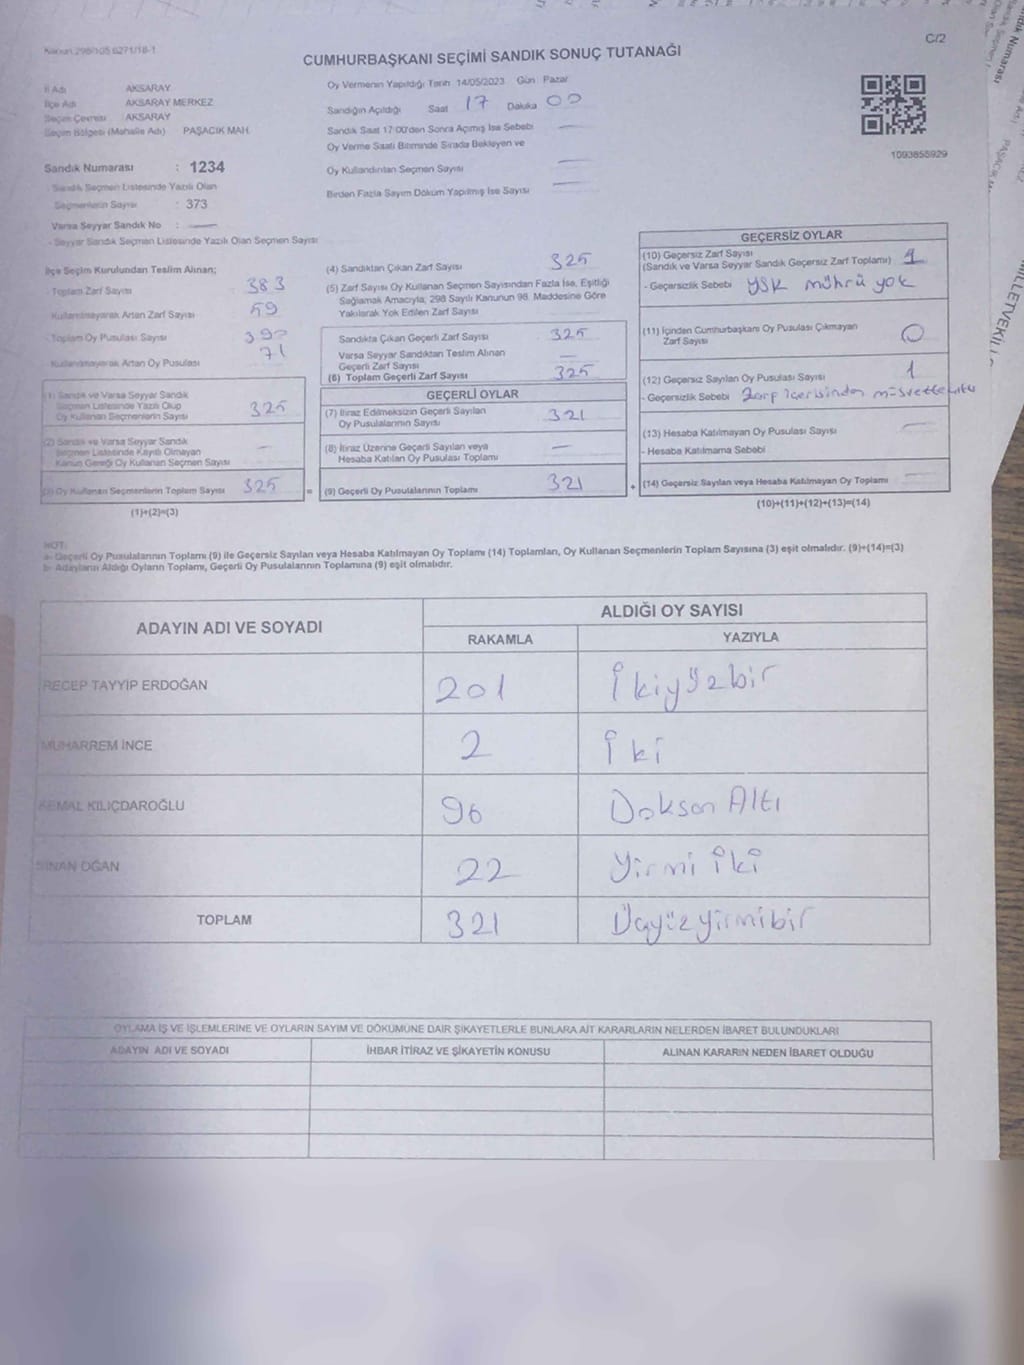 Kanun 298/105 6271/18-1
C/2
CUMHURBAŞKANI SEÇİMİ SANDIK SONUÇ TUTANAĞI
İl Adı AKSARAY
İlçe Adı AKSARAY MERKEZ
Seçim Çevresi AKSARAY
Seçim Bölgesi (Mahalle Adı) PAŞACIK MAH.
Oy Vermenin Yapıldığı Tarih 14/05/2023 Gün Pazar
Sandığın Açıldığı Saat 17 Dakika 00
Sandık Saat 17:00'den Sonra Açılmış İse Sebebi —
Oy Verme Saati Bitiminde Sırada Bekleyen ve
Oy Kullandırılan Seçmen Sayısı —
Birden Fazla Sayım Döküm Yapılmış İse Sayısı —
1093855929
Sandık Numarası : 1234
Sandık Seçmen Listesinde Yazılı Olan
Seçmenlerin Sayısı : 373
Varsa Seyyar Sandık No : —
- Seyyar Sandık Seçmen Listesinde Yazılı Olan Seçmen Sayısı
İlçe Seçim Kurulundan Teslim Alınan;
- Toplam Zarf Sayısı 383
Kullanılmayarak Artan Zarf Sayısı 59
- Toplam Oy Pusulası Sayısı
Kullanılmayarak Artan Oy Pusulası 71
(1) Sandık ve Varsa Seyyar Sandık
Seçmen Listesinde Yazılı Olup
Oy Kullanan Seçmenlerin Sayısı 325
(2) Sandık ve Varsa Seyyar Sandık
Seçmen Listesinde Kayıtlı Olmayan
Kanun Gereği Oy Kullanan Seçmen Sayısı —
(3) Oy Kullanan Seçmenlerin Toplam Sayısı 325
(1)+(2)=(3)
(4) Sandıktan Çıkan Zarf Sayısı 325
(5) Zarf Sayısı Oy Kullanan Seçmen Sayısından Fazla İse, Eşitliği
Sağlamak Amacıyla, 298 Sayılı Kanunun 98. Maddesine Göre
Yakılarak Yok Edilen Zarf Sayısı
Sandıkta Çıkan Geçerli Zarf Sayısı 325
Varsa Seyyar Sandıktan Teslim Alınan
Geçerli Zarf Sayısı —
(6) Toplam Geçerli Zarf Sayısı 325
GEÇERLİ OYLAR
(7) İtiraz Edilmeksizin Geçerli Sayılan
Oy Pusulalarının Sayısı 321
(8) İtiraz Üzerine Geçerli Sayılan veya
Hesaba Katılan Oy Pusulası Toplamı —
= (9) Geçerli Oy Pusulalarının Toplamı 321
GEÇERSİZ OYLAR
(10) Geçersiz Zarf Sayısı
(Sandık ve Varsa Seyyar Sandık Geçersiz Zarf Toplamı) 1
- Geçersizlik Sebebi YSK mührü yok
(11) İçinden Cumhurbaşkanı Oy Pusulası Çıkmayan
Zarf Sayısı 0
(12) Geçersiz Sayılan Oy Pusulası Sayısı 1
- Geçersizlik Sebebi Zarf içerisinden
(13) Hesaba Katılmayan Oy Pusulası Sayısı —
- Hesaba Katılmama Sebebi
+ (14) Geçersiz Sayılan veya Hesaba Katılmayan Oy Toplamı —
(10)+(11)+(12)+(13)=(14)
NOT:
a- Geçerli Oy Pusulalarının Toplamı (9) ile Geçersiz Sayılan veya Hesaba Katılmayan Oy Toplamı (14) Toplamları, Oy Kullanan Seçmenlerin Toplam Sayısına (3) eşit olmalıdır. (9)+(14)=(3)
b- Adayların Aldığı Oyların Toplamı, Geçerli Oy Pusulalarının Toplamına (9) eşit olmalıdır.
ADAYIN ADI VE SOYADI
ALDIĞI OY SAYISI
RAKAMLA YAZIYLA
RECEP TAYYİP ERDOĞAN 201 İkiyüzbir
MUHARREM İNCE 2 İki
KEMAL KILIÇDAROĞLU 96 Doksan Altı
SİNAN OĞAN 22 Yirmi iki
TOPLAM 321 Üçyüzyirmibir
OYLAMA İŞ VE İŞLEMLERİNE VE OYLARIN SAYIM VE DÖKÜMÜNE DAİR ŞİKAYETLERLE BUNLARA AİT KARARLARIN NELERDEN İBARET BULUNDUKLARI
ADAYIN ADI VE SOYADI İHBAR İTİRAZ VE ŞİKAYETİN KONUSU ALINAN KARARIN NEDEN İBARET OLDUĞU